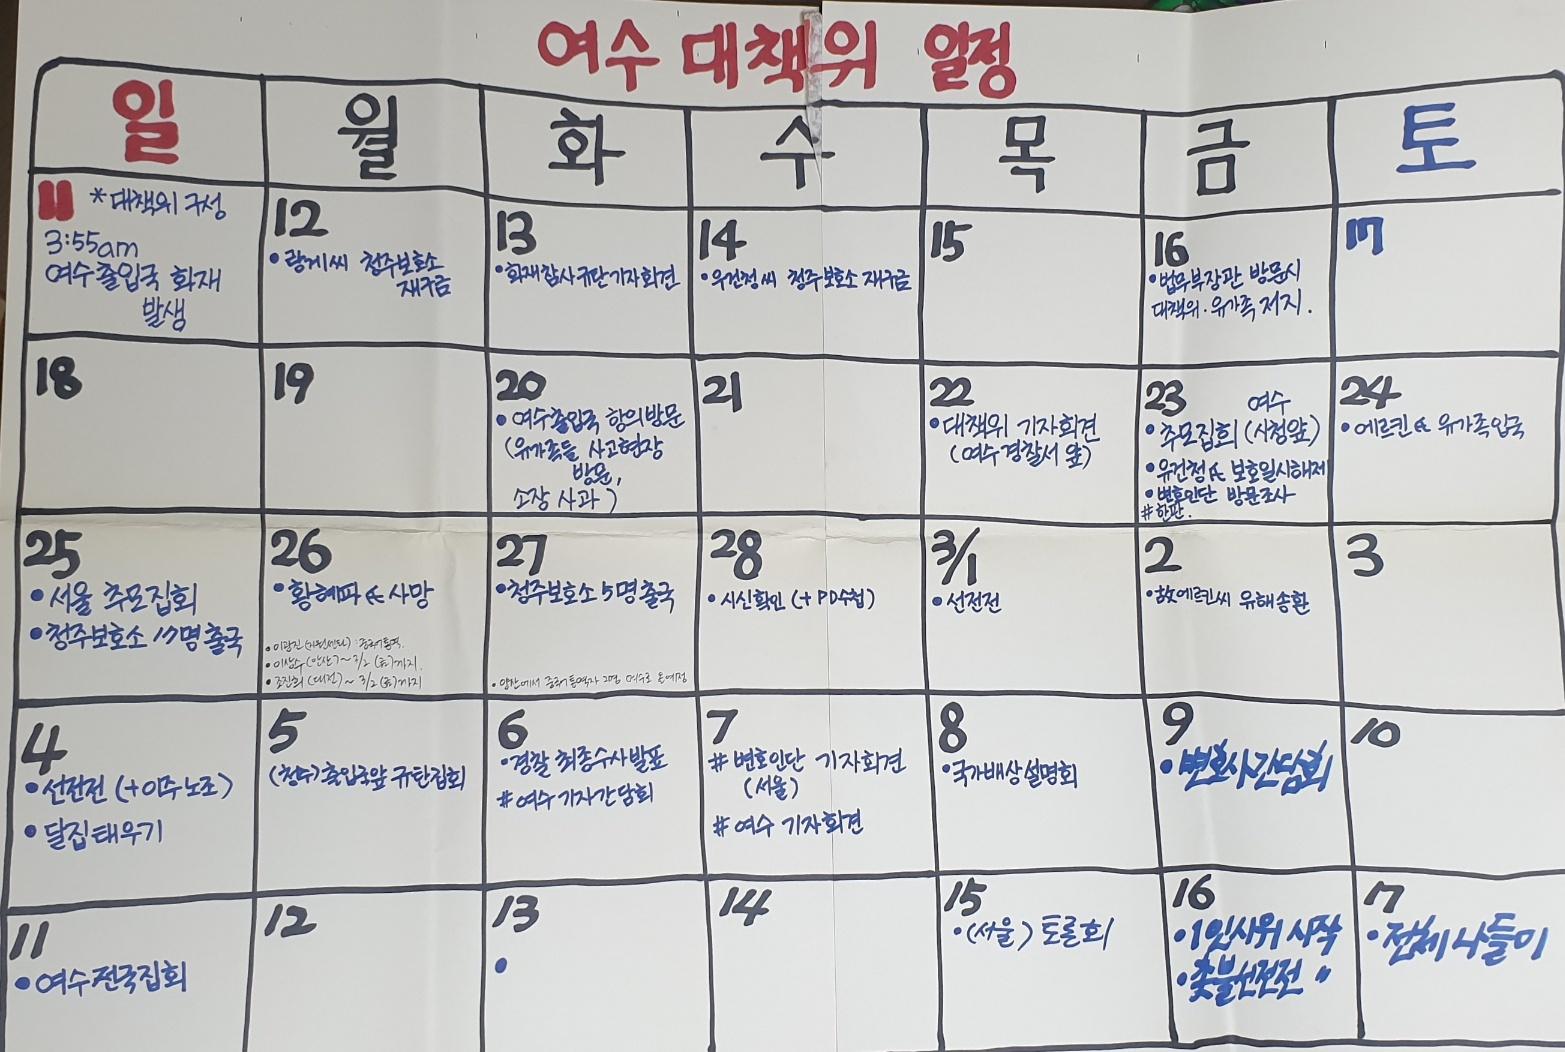 여수 대책위 일정
일 월 화 수 목 금 토
11 *대책위 구성
3:55am
여수출입국 화재
발생
12
• 광게씨 청주보호소
재구금
13
• 화재참사규탄기자회견
14
• 우건청씨 청주보호소 재구금
15
16
• 법무부장관 방문시
대책위·유가족 저지.
17
18
19
20
• 여수출입국 항의방문
(유가족들 사고현장
방문,
소장 사과)
21
22
• 대책위 기자회견
(여수경찰서 앞)
23 여수
• 추모집회 (시청앞)
• 유건청氏 보호일시해제
• 변호인단 방문조사
# 한판.
24
• 에르킨氏 유가족입국
25
• 서울 추모집회
• 청주보호소 17명 출국
26
• 황해파氏 사망
• 이광진 (지원센터) : 중국어통역.
• 이상수 (안산) ~ 3/2 (金)까지.
• 조진희 (대전) ~ 3/2 (金)까지
27
• 청주보호소 5명 출국
• 양산에서 중국어통역자 2명 여수로 올예정
28
• 시신확인 (+PD수첩)
3/1
• 선전전
2
• 故에르킨씨 유해송환
3
4
• 선전전 (+이주노조)
• 달집태우기
5
(청주)출입국앞 규탄집회
6
• 경찰 최종수사발표
# 여수 기자간담회
7
# 변호인단 기자회견
(서울)
# 여수 기자회견
8
• 국가배상설명회
9
• 변호사간담회
10
11
• 여수전국집회
12
13
•
14
15
• (서울) 토론회
16
• 1인시위 시작
• 촛불선전전 〃
17
• 전체 나들이